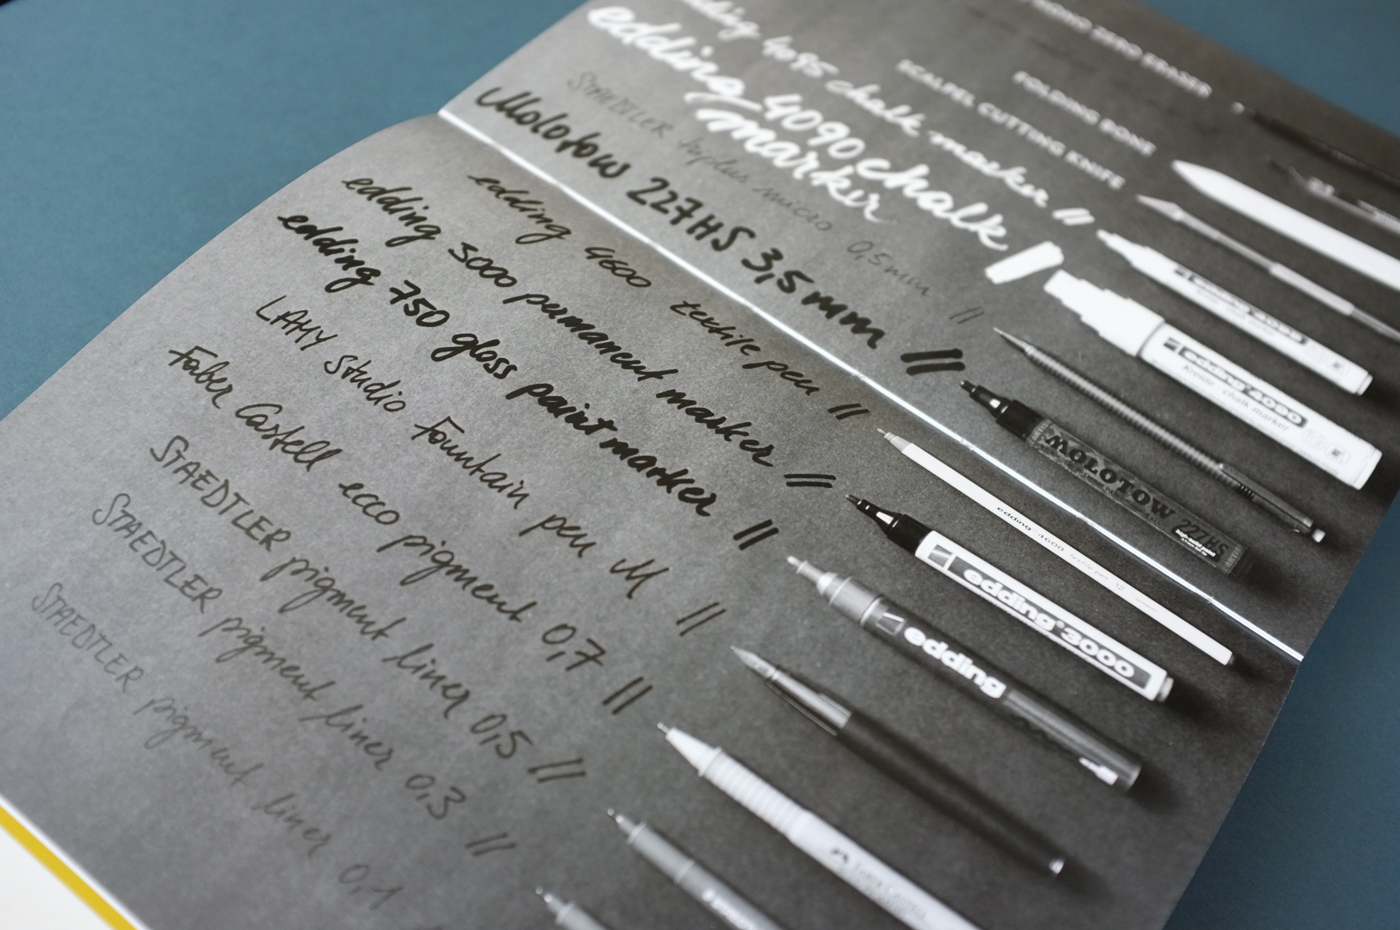 MONO ZERO ERASER
FOLDING BONE
SCALPEL CUTTING KNIFE
edding 4095 chalk marker
edding 4090 chalk
marker
STAEDTLER triplus micro 0,5mm
Molotow 227HS 3,5mm
edding 4600 textile pen
edding 3000 permanent marker
edding 750 gloss paint marker
LAMY Studio Fountain pen M
Faber Castell ecco pigment 0,7
STAEDTLER pigment liner 0,5
STAEDTLER pigment liner 0,3
STAEDTLER pigment liner 0,1
edding 4095
edding 4090
Kreide - chalk marker
MOLOTOW 227HS
edding 4600
edding 3000
edding
Faber-Castell